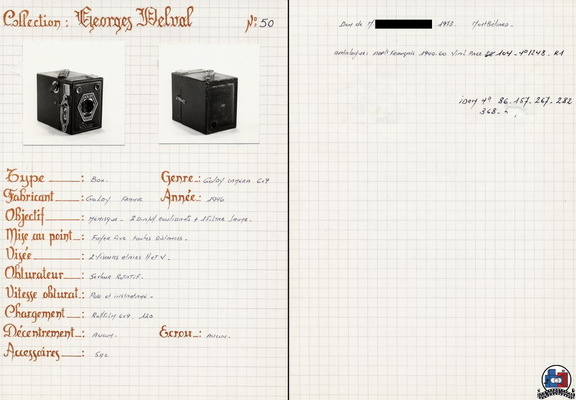 Collection : Georges Delval N°: 50
Type : Box.
Genre : Goldy caméra 6x9
Fabricant : Goldy France
Année : 1946
Objectif : Ménisque - 2 coulissants + 1 filtre jaune.
Mise au point : Foyer fixe toutes distances.
Visée : 2 viseurs clairs H et V.
Obturateur : Secteur Rotatif.
Vitesse obturat : Pose et instantané.
Chargement : Rollfilm 6x9. 120
Décentrement : Aucun.
Ecrou : Aucun.
Accessoires : Sac
Don de M 1993. Montbéliard.
Français. 1940.60 Vial Page 104 - N°1248. R1
idem N° 86.157.267.282
368.